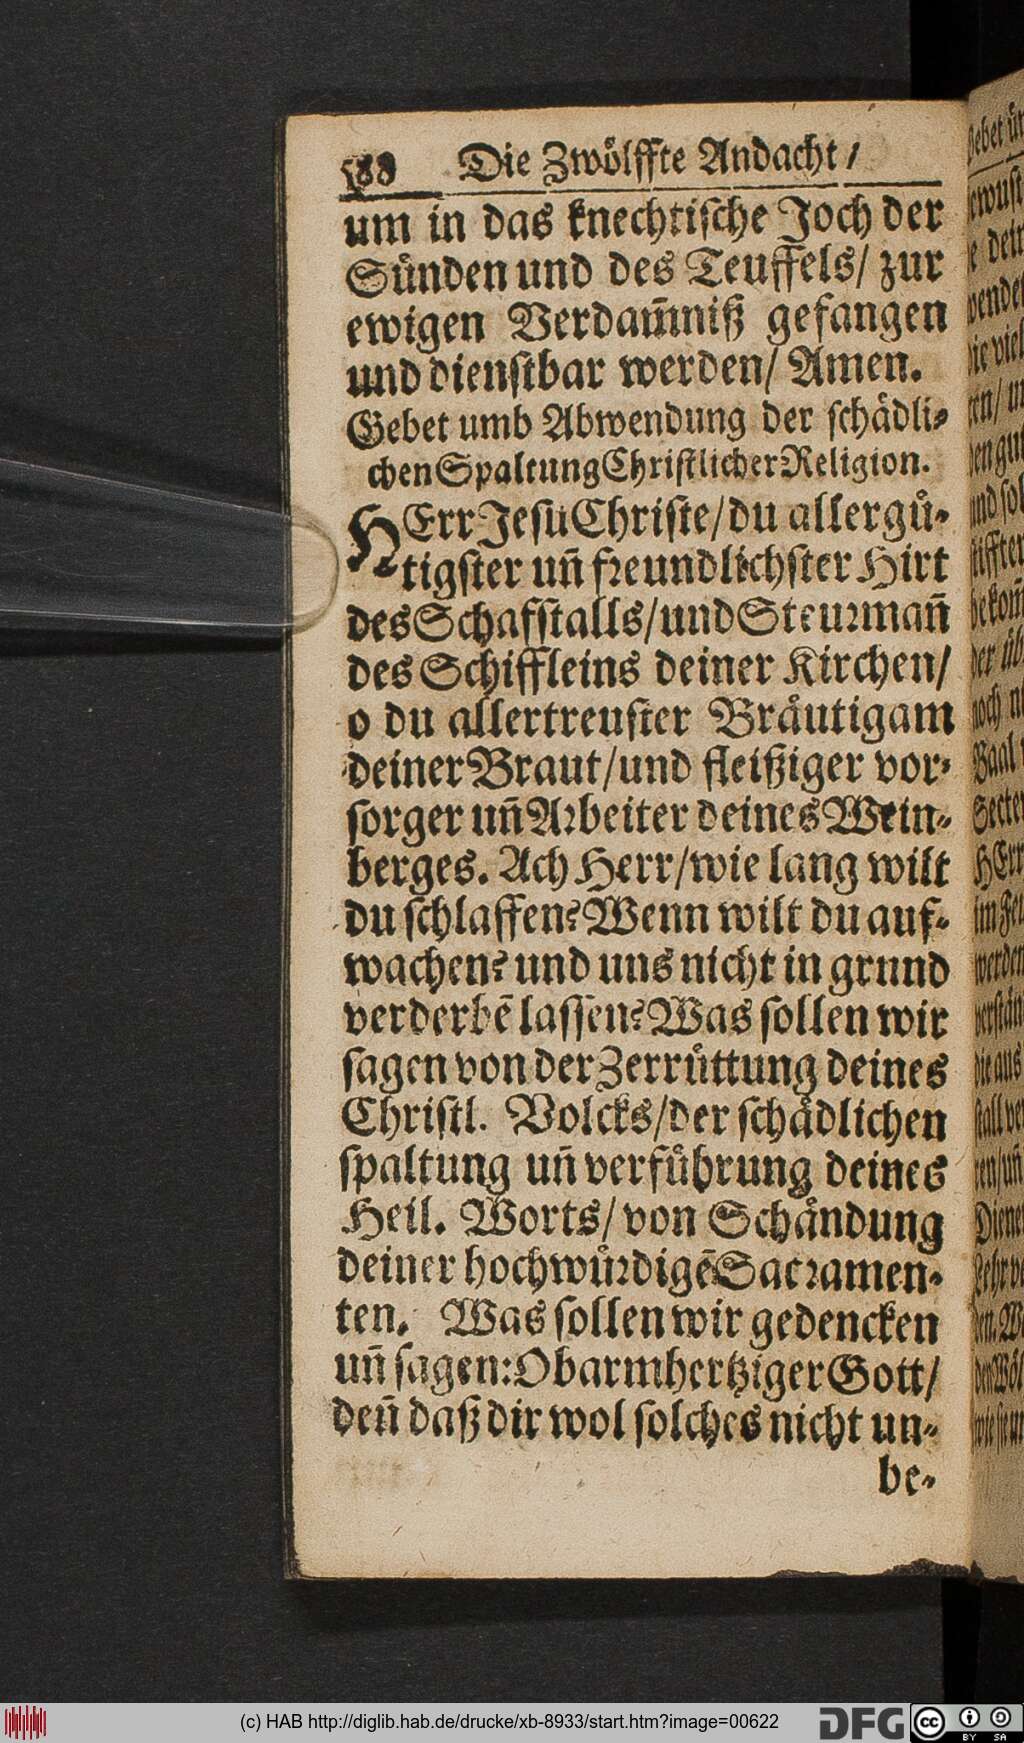 588 Die Zwoͤlffte Andacht /
um in das knechtiſche Joch der
Suͤnden und des Teuffels / zur
ewigen Verdam̃niß gefangen
und dienſtbar werden / Amen.
Gebet umb Abwendung der ſchaͤdli⸗
chen Spaltung Chriſtlicher Religion.
HErr Jeſu Chriſte / du allerguͤ⸗
tigſter uñ freundlichſter Hirt
des Schafſtalls / und Steurmañ
des Schiffleins deiner Kirchen /
o du allertreuſter Braͤutigam
deiner Braut / und fleißiger vor⸗
ſorger uñ Arbeiter deines Wein⸗
berges. Ach Herr / wie lang wilt
du ſchlaffen? Wenn wilt du auf⸗
wachen? und uns nicht in grund
verderbẽ laſſen? Was ſollen wir
ſagen von der Zerruͤttung deines
Chriſtl. Volcks / der ſchaͤdlichen
ſpaltung uñ verfuͤhrung deines
Heil. Worts / von Schaͤndung
deiner hochwuͤrdigẽ Sacramen⸗
ten. Was ſollen wir gedencken
uñ ſagen: O barmhertziger Gott /
deñ daß dir wol ſolches nicht un⸗
be⸗
(c) HAB http://diglib.hab.de/drucke/xb-8933/start.htm?image=00622
DFG
cc BY SA